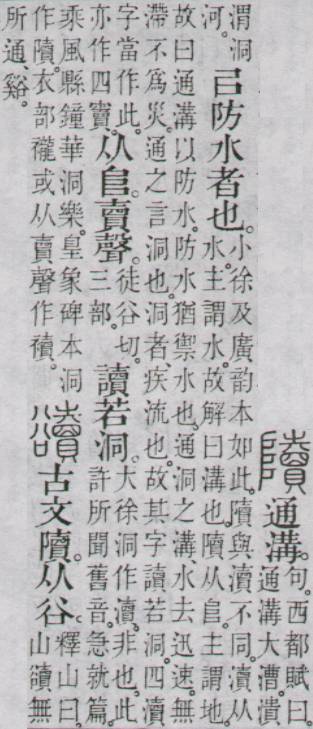 通溝。句。西都賦曰。通溝大漕。潰
渭洞河。㠯防水者也。小徐及廣韵本如此。𨽍與瀆不同。瀆从水。主謂水。故解曰溝也。𨽍从𨸏。主謂地。
故曰通溝以防水。防水猶禦水也。通洞之溝。水去迅速。無滯不爲災。通之言洞也。洞者、疾流也。故其字讀若洞。四瀆
字當作此。亦作四竇。从𨸏。賣聲。徒谷切。三部。讀若洞。大徐洞作瀆。非也。此許所聞舊音。急就篇。
乘風縣鐘華洞樂。皇象碑本洞作𨽍。衣部襱或从賣聲作襩。古文𨽍。从谷。釋山曰。山豄無
所通、谿。